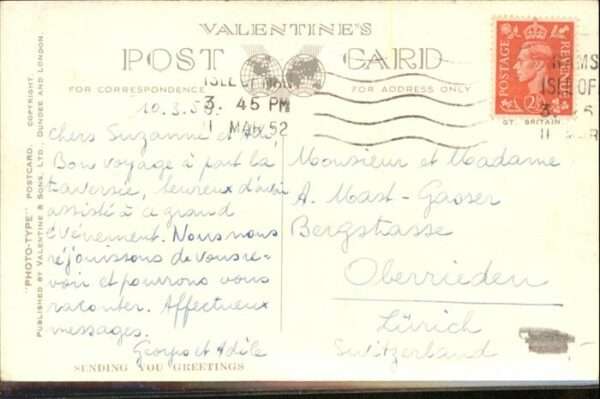 VALENTINE'S
POST CARD
FOR CORRESPONDENCE
FOR ADDRESS ONLY
"PHOTO-TYPE" POSTCARD. COPYRIGHT.
PUBLISHED BY VALENTINE & SONS, LTD., DUNDEE AND LONDON.
POSTAGE
REVENUE
GT. BRITAIN
3. 45 PM
52
chers Suzanne
Bon voyage à part la
traversée, heureux d'avoir
assisté à ce grand
événement. Nous nous
réjouissons de vous re-
voir et pourrons vous
raconter. Affectueux
messages.
Georges et Adèle
Monsieur et Madame
A. Mast-Gasser
Bergstrasse
Oberrieden
Zürich
Switzerland
SENDING YOU GREETINGS